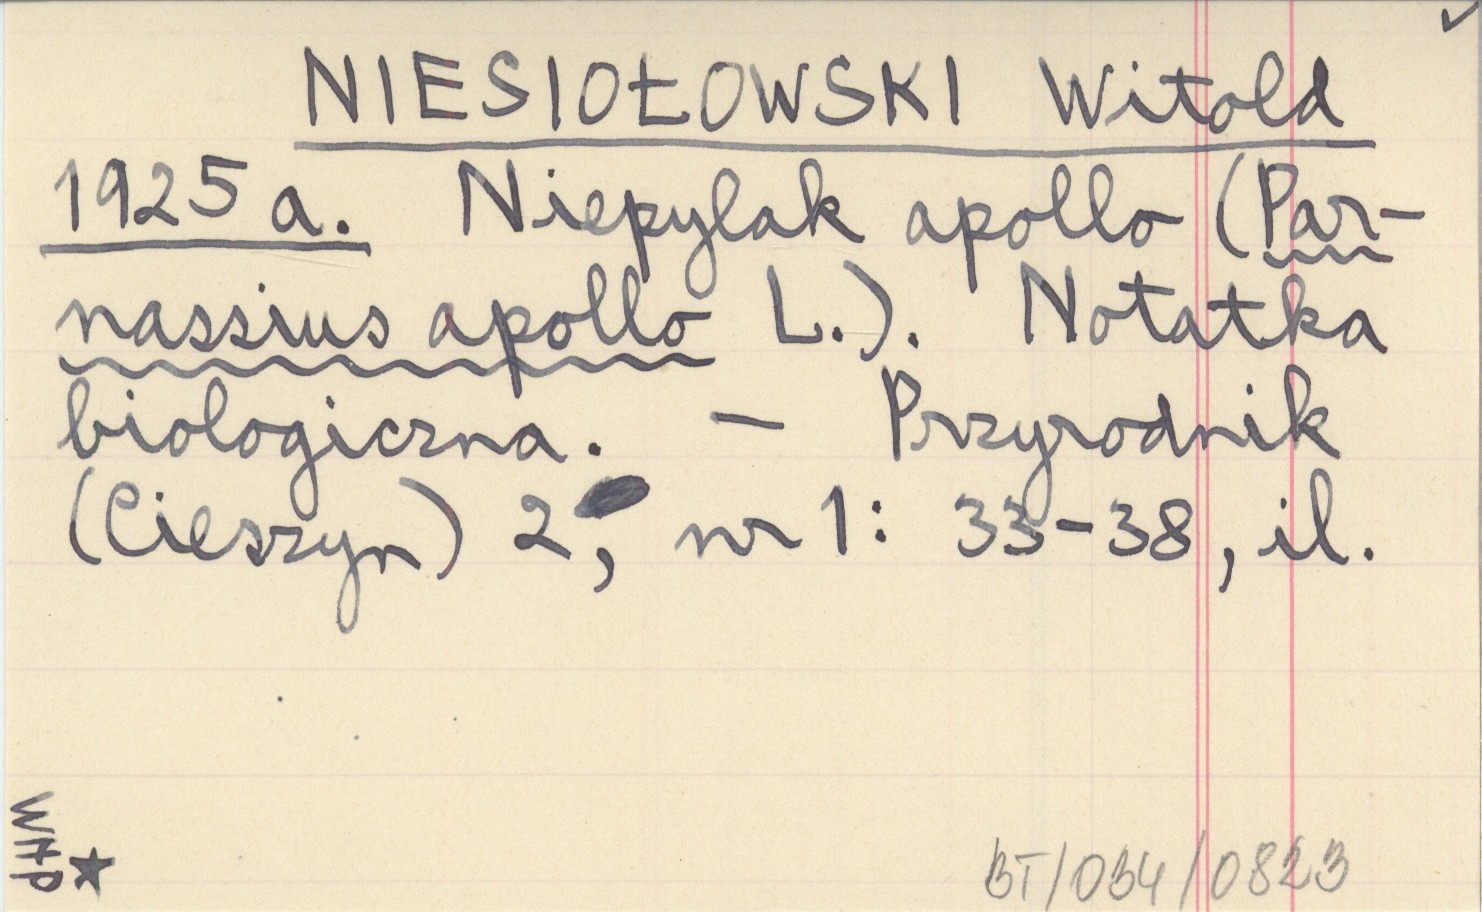 NIESIOŁOWSKI Witold
1925 a. Niepylak apollo (Par-
nassius apollo L.). Notatka
biologiczna. — Przyrodnik
(Cieszyn) 2, nr 1: 33-38, il.
WAP
BT/034/0823